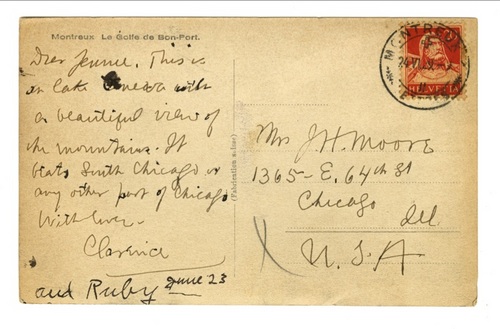 Montreux Le Golfe de Bon-Port.
Dear Jennie. This is
on lake Geneva with
a beautiful view of
the mountains. It
beats South Chicago or
any other part of Chicago
With love-
Clarence
and Ruby June 23
(Fabrication suisse)
MONTREUX
HELVETIA
Mrs J. H. Moore
1365- E. 64th St
Chicago Ill.
U. S. A